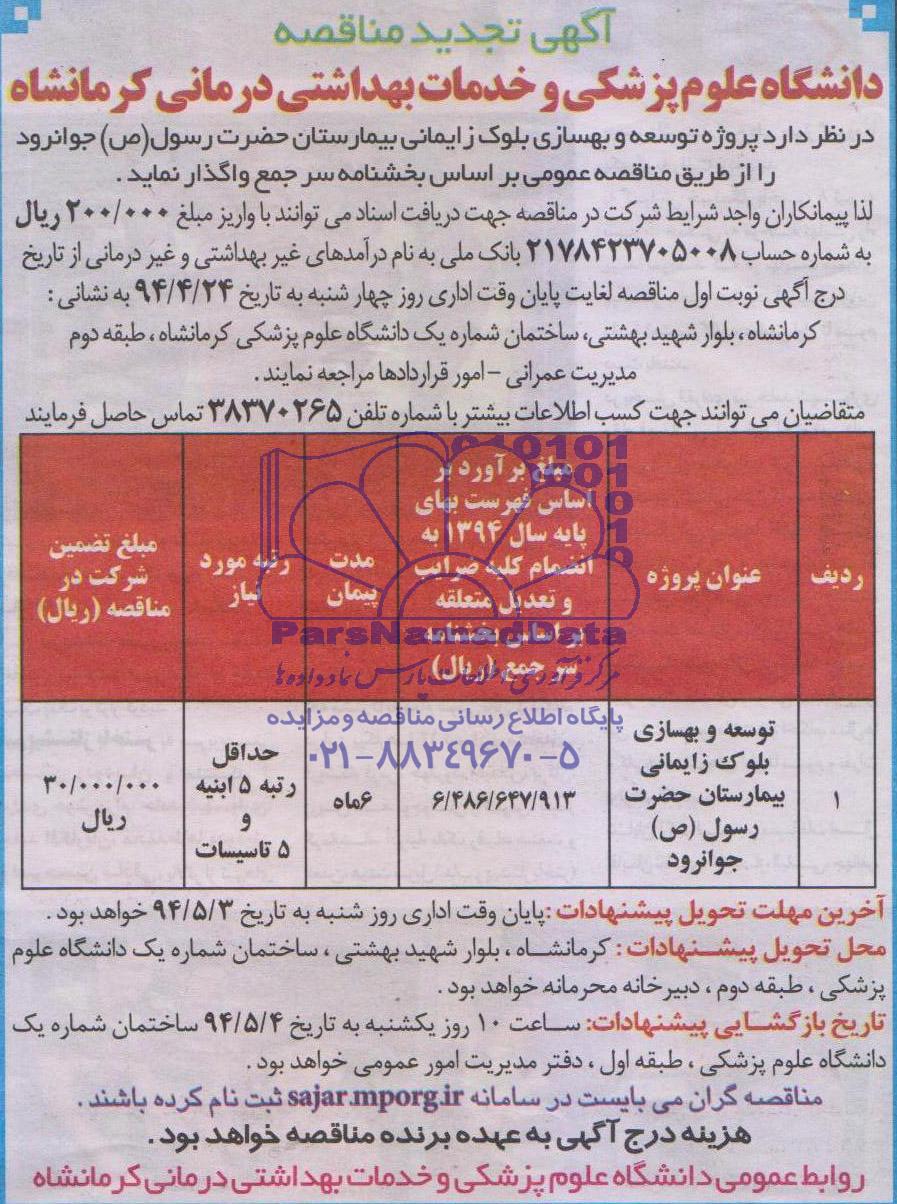 آگهی تجدید مناقصه
دانشگاه علوم پزشکی و خدمات بهداشتی درمانی کرمانشاه
در نظر دارد پروژه توسعه و بهسازی بلوک زایمانی بیمارستان حضرت رسول(ص) جوانرود
را از طریق مناقصه عمومی بر اساس بخشنامه سر جمع واگذار نماید .
لذا پیمانکاران واجد شرایط شرکت در مناقصه جهت دریافت اسناد می توانند با واریز مبلغ ۲۰۰/۰۰۰ ریال
به شماره حساب ۲۱۷۸۴۲۳۷۰۵۰۰۸ بانک ملی به نام درآمدهای غیر بهداشتی و غیر درمانی از تاریخ
درج آگهی نوبت اول مناقصه لغایت پایان وقت اداری روز چهار شنبه به تاریخ ۹۴/۴/۲۴ به نشانی :
کرمانشاه ، بلوار شهید بهشتی، ساختمان شماره یک دانشگاه علوم پزشکی کرمانشاه ، طبقه دوم
مدیریت عمرانی - امور قراردادها مراجعه نمایند .
متقاضیان می توانند جهت کسب اطلاعات بیشتر با شماره تلفن ۳۸۳۷۰۲۶۵ تماس حاصل فرمایند
ردیف
عنوان پروژه
مبلغ برآورد بر
اساس فهرست بهای
پایه سال ۱۳۹۴ به
انضمام کلیه ضرائب
و تعدیل متعلقه
بر اساس بخشنامه
سر جمع (ریال)
مدت
پیمان
رتبه مورد
نیاز
مبلغ تضمین
شرکت در
مناقصه (ریال)
۱
توسعه و بهسازی
بلوک زایمانی
بیمارستان حضرت
رسول (ص)
جوانرود
۶/۴۸۶/۶۴۷/۹۱۳
۶ماه
حداقل
رتبه ۵ ابنیه
و
۵ تاسیسات
۳۰/۰۰۰/۰۰۰
ریال
010101
ParsNamadData
مرکز فرآوری اطلاعات پارس نماد داده ها
پایگاه اطلاع رسانی مناقصه و مزایده
۰۲۱-۸۸۳۴۹۶۷۰-۵
آخرین مهلت تحویل پیشنهادات :پایان وقت اداری روز شنبه به تاریخ ۹۴/۵/۳ خواهد بود .
محل تحویل پیشنهادات : کرمانشاه ، بلوار شهید بهشتی ، ساختمان شماره یک دانشگاه علوم
پزشکی ، طبقه دوم ، دبیرخانه محرمانه خواهد بود .
تاریخ بازگشایی پیشنهادات: ساعت ۱۰ روز یکشنبه به تاریخ ۹۴/۵/۴ ساختمان شماره یک
دانشگاه علوم پزشکی ، طبقه اول ، دفتر مدیریت امور عمومی خواهد بود .
مناقصه گران می بایست در سامانه sajar.mporg.ir ثبت نام کرده باشند .
هزینه درج آگهی به عهده برنده مناقصه خواهد بود .
روابط عمومی دانشگاه علوم پزشکی و خدمات بهداشتی درمانی کرمانشاه